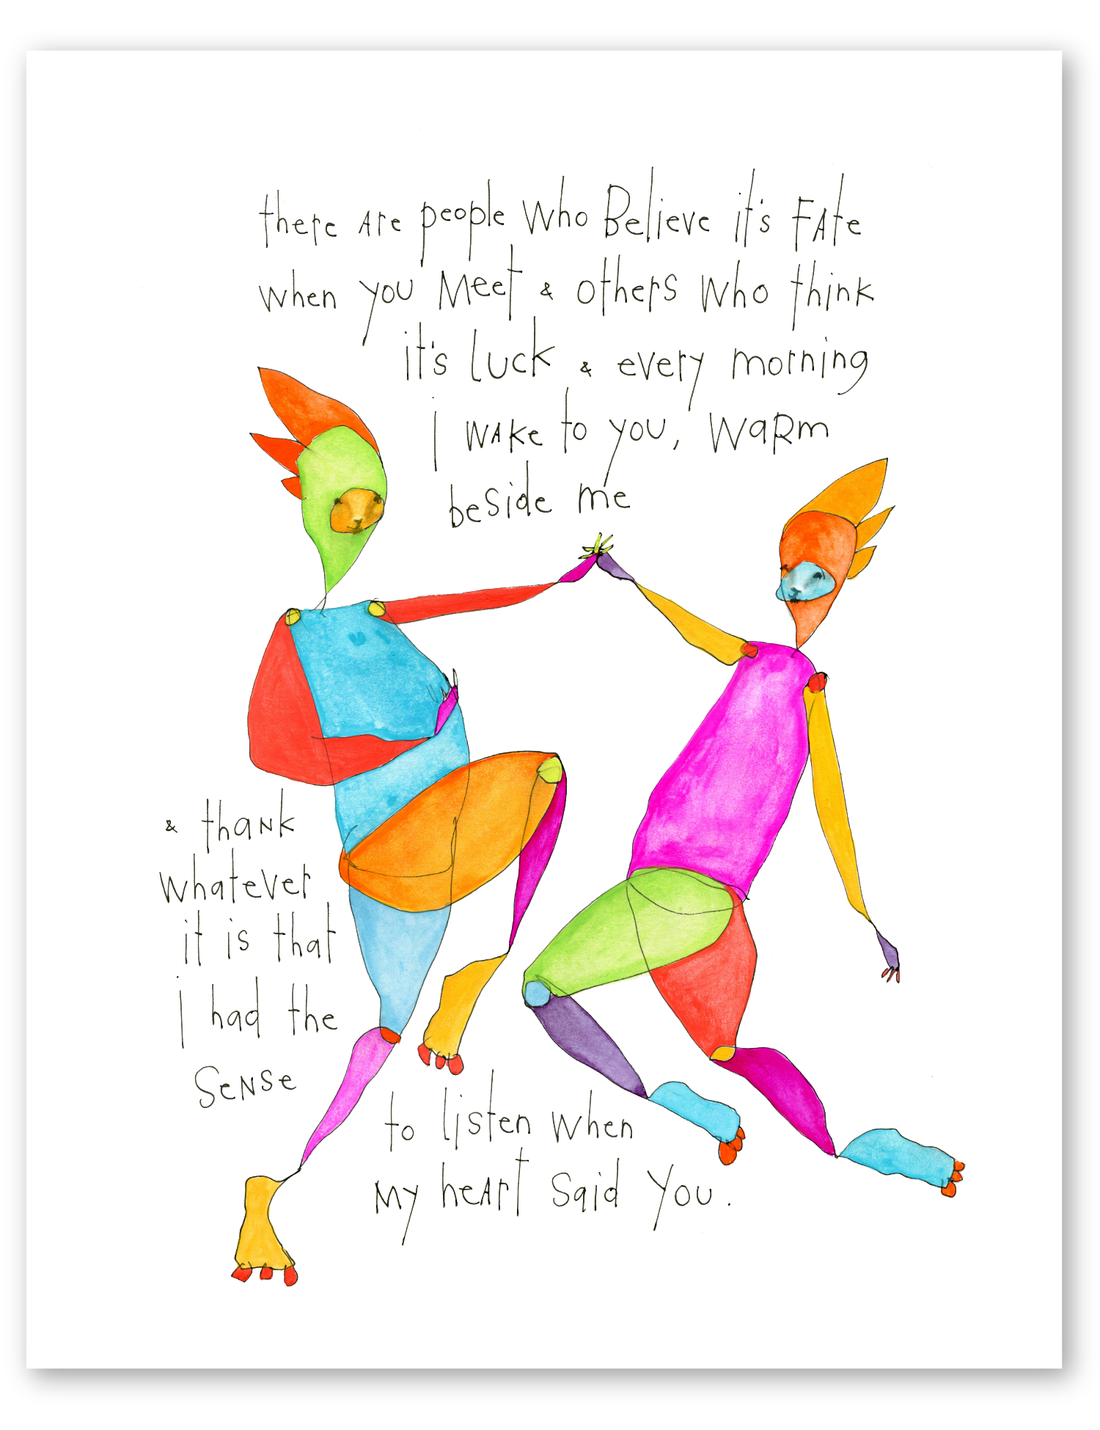 there are people who Believe it's FAte
when you Meet & others who think
it's luck & every morning
I wake to you, warm
beside me
& thank
whatever
it is that
I had the
sense
to listen when
My heart said you.